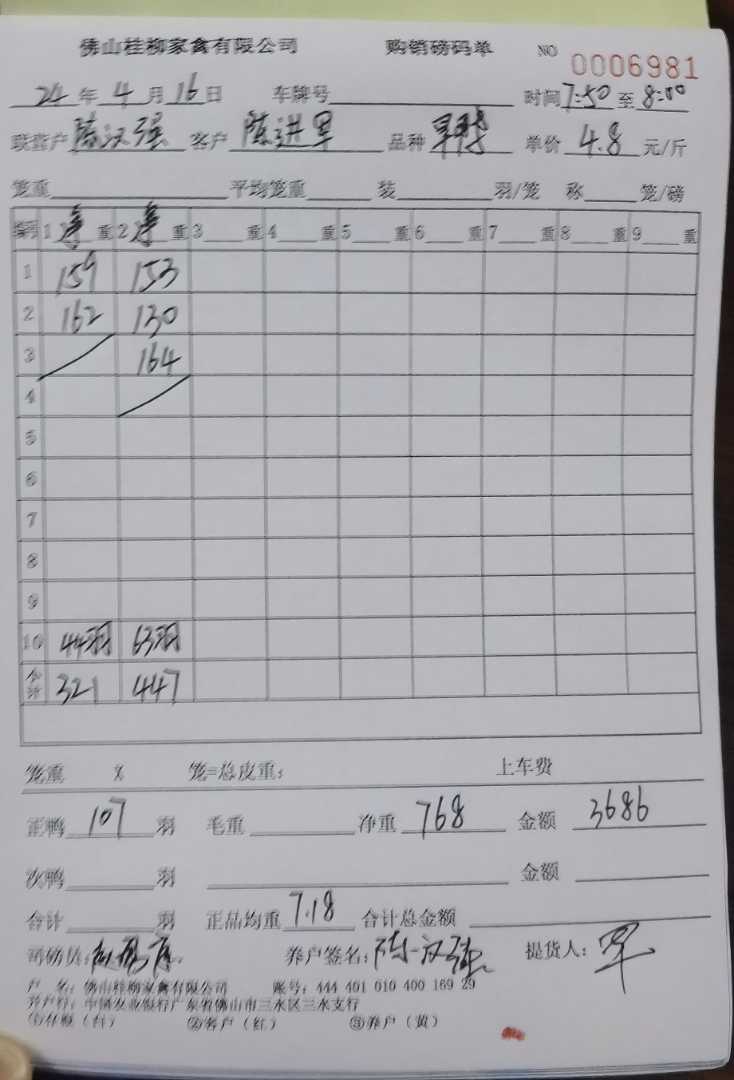 佛山桂柳家禽有限公司 购销磅码单 NO 0006981
24 年 4 月 16 日 车牌号 时间 7:50 至 8:00
联营户 陈汉强 客户 陈进军 品种 单价 4.8 元/斤
笼重 平均笼重 装 羽/笼 称 笼/磅
编号 1 净 重 2 净 重 3 重 4 重 5 重 6 重 7 重 8 重 9 重
1 159 153
2 162 130
3 164
4
5
6
7
8
9
10 44羽 63羽
合计 321 447
笼重 % 笼=总皮重: 上车费
正鸭 107 羽 毛重 净重 768 金额 3686
次鸭 羽 金额
合计 羽 正品均重 7.18 合计总金额
司磅员: 养户签名: 陈汉强 提货人: 军
户 名: 佛山桂柳家禽有限公司 账号: 444 401 010 400 169 29
开户行: 中国农业银行广东省佛山市三水区三水支行
①存根（白） ②客户（红） ③养户（黄）